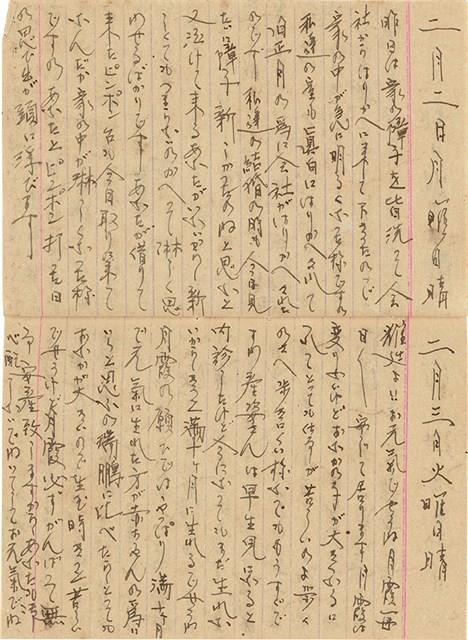 二月二日月曜日晴
昨日は家の障子を皆洗つて会
社からはりかへに来て下さつたので
家の中が急に明るくなつた様ですの
私達の室も真白にはりかへられて
旧正月の為に会社がはりかへてくれた
のです 私達の結婚の時も今見
たいに障子新しかつたのねと思ふと
又泣けて来る あなたがいないから新しく
しても つまらないのかへつて淋しく思
はせるばかりです あなたが借りて
来たピンポン台も今日取りに来て
ふんだか家の中が淋しくなつた様
ですの あなたとピンポン打つた日
の思ひ出が頭に浮びます
二月三日火曜日晴
雅造よ お元気でせうね 月霞毎
日 案じて居ります 月霞は
変りないけどおなかの子が大きくなるに
つれてとても仕事が苦しいのよ 歩く
のさへ歩きにくい様ですの もうすぐで
すの 産婆さんは早生児になると
診したけど今になつてもまだ生れな
いからきつと満十ヶ月に生れるでせうね
月霞の願ひではやつぱり満十ヶ月
で元気に生れた方が赤ちゃんの為に
いゝと思ふの 瑞鵬に比べたらとても
おなかが大きいので生む時きつと苦しい
でせうけど月霞必ずがんばつて無
事安産致しますからあなたも
心配しないでね いつまでもお元気でね